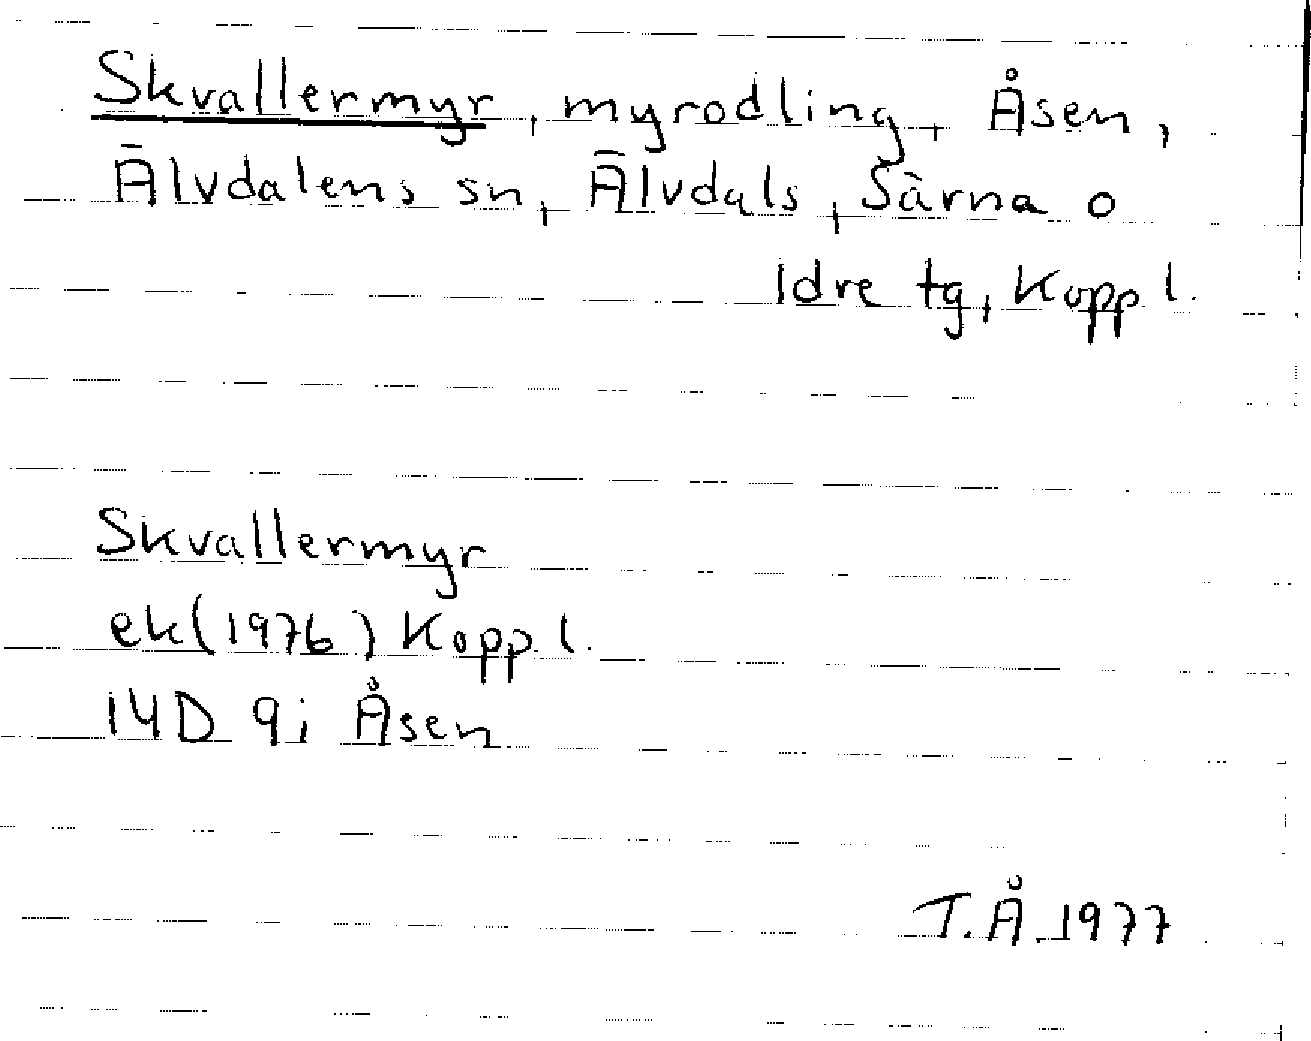 Skvallermyr, myrodling, Åsen,
Älvdalens sn, Älvdals, Särna o
Idre tg, Kopp l.
Skvallermyr
ek(1976) Kopp. l.
14D 9i Åsen
T.Å.1977